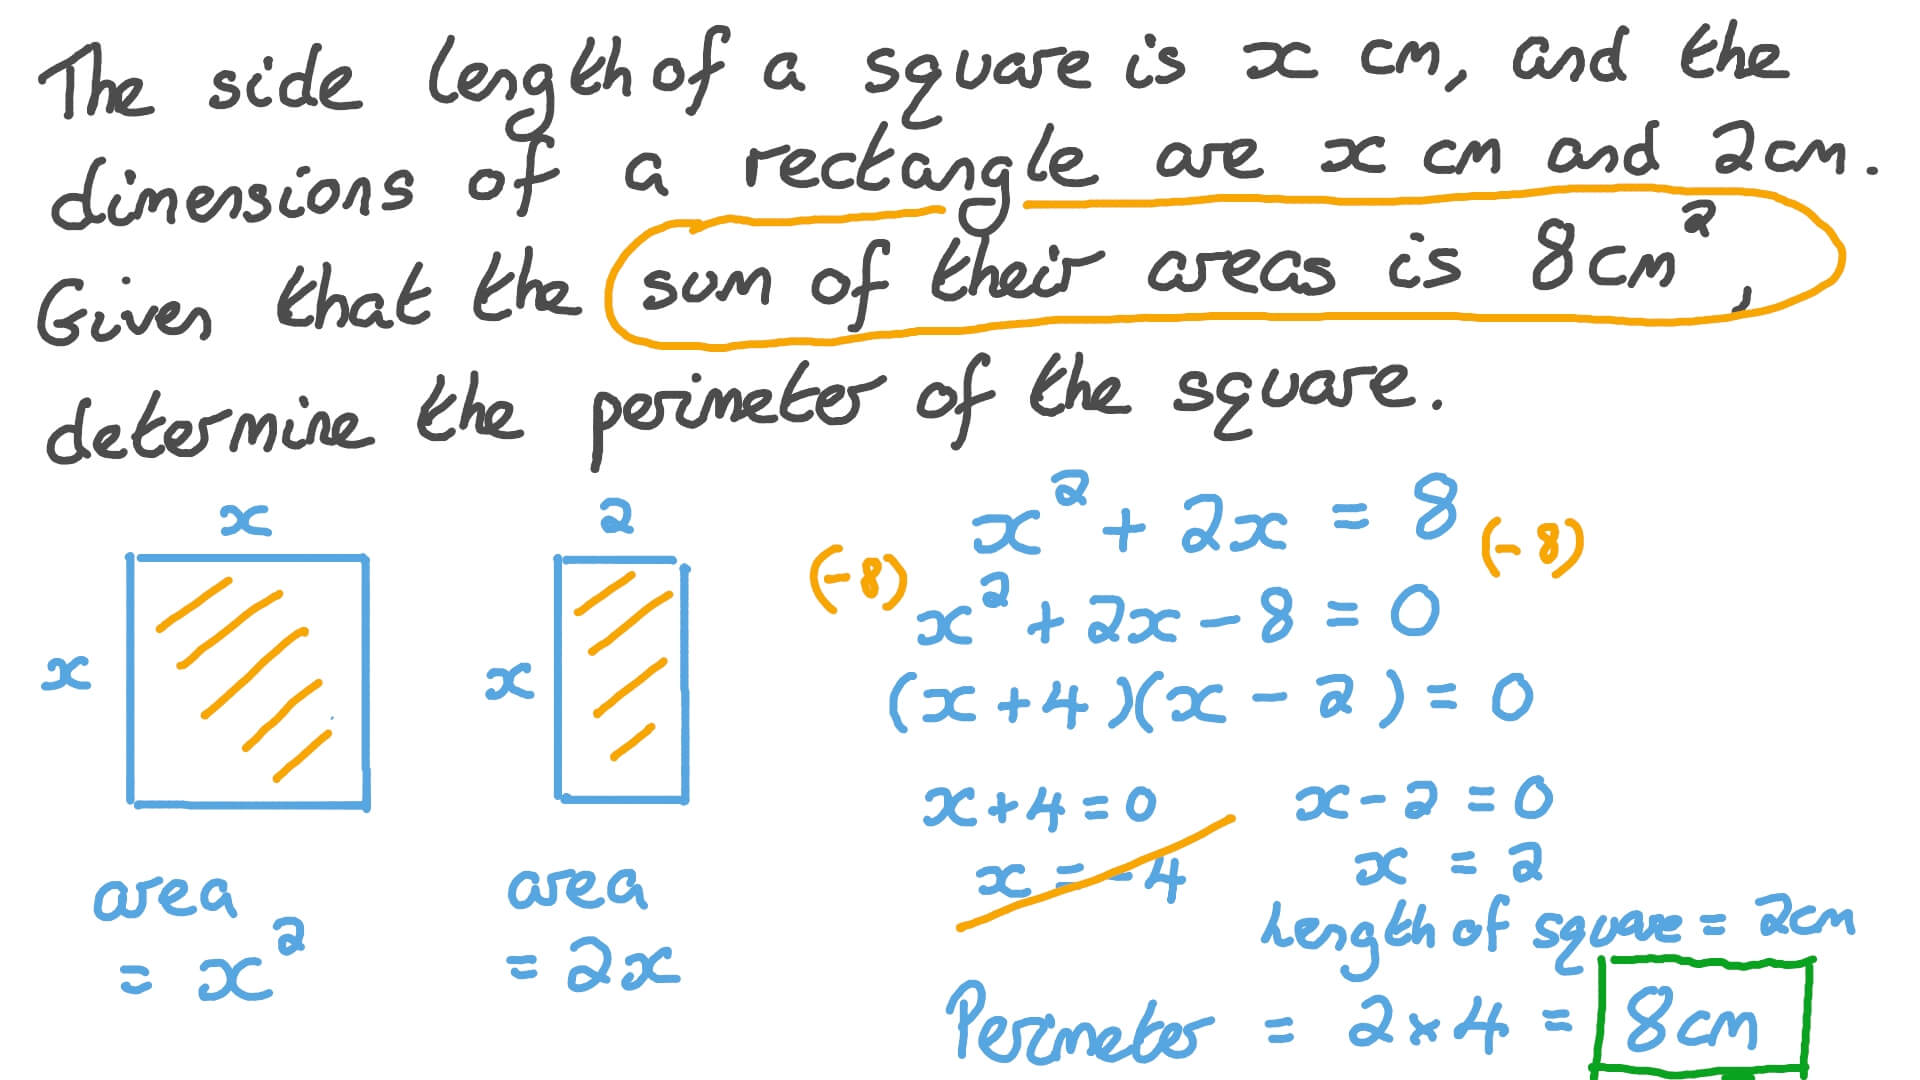 The side length of a square is x cm, and the
dimensions of a rectangle are x cm and 2cm.
Given that the sum of their areas is 8cm²,
determine the perimeter of the square.
x
x
area
= x²
2
x
area
= 2x
x² + 2x = 8
(-8) (-8)
x² + 2x - 8 = 0
(x + 4)(x - 2) = 0
x + 4 = 0
x = -4
x - 2 = 0
x = 2
Length of square = 2cm
Perimeter = 2 × 4 = 8cm